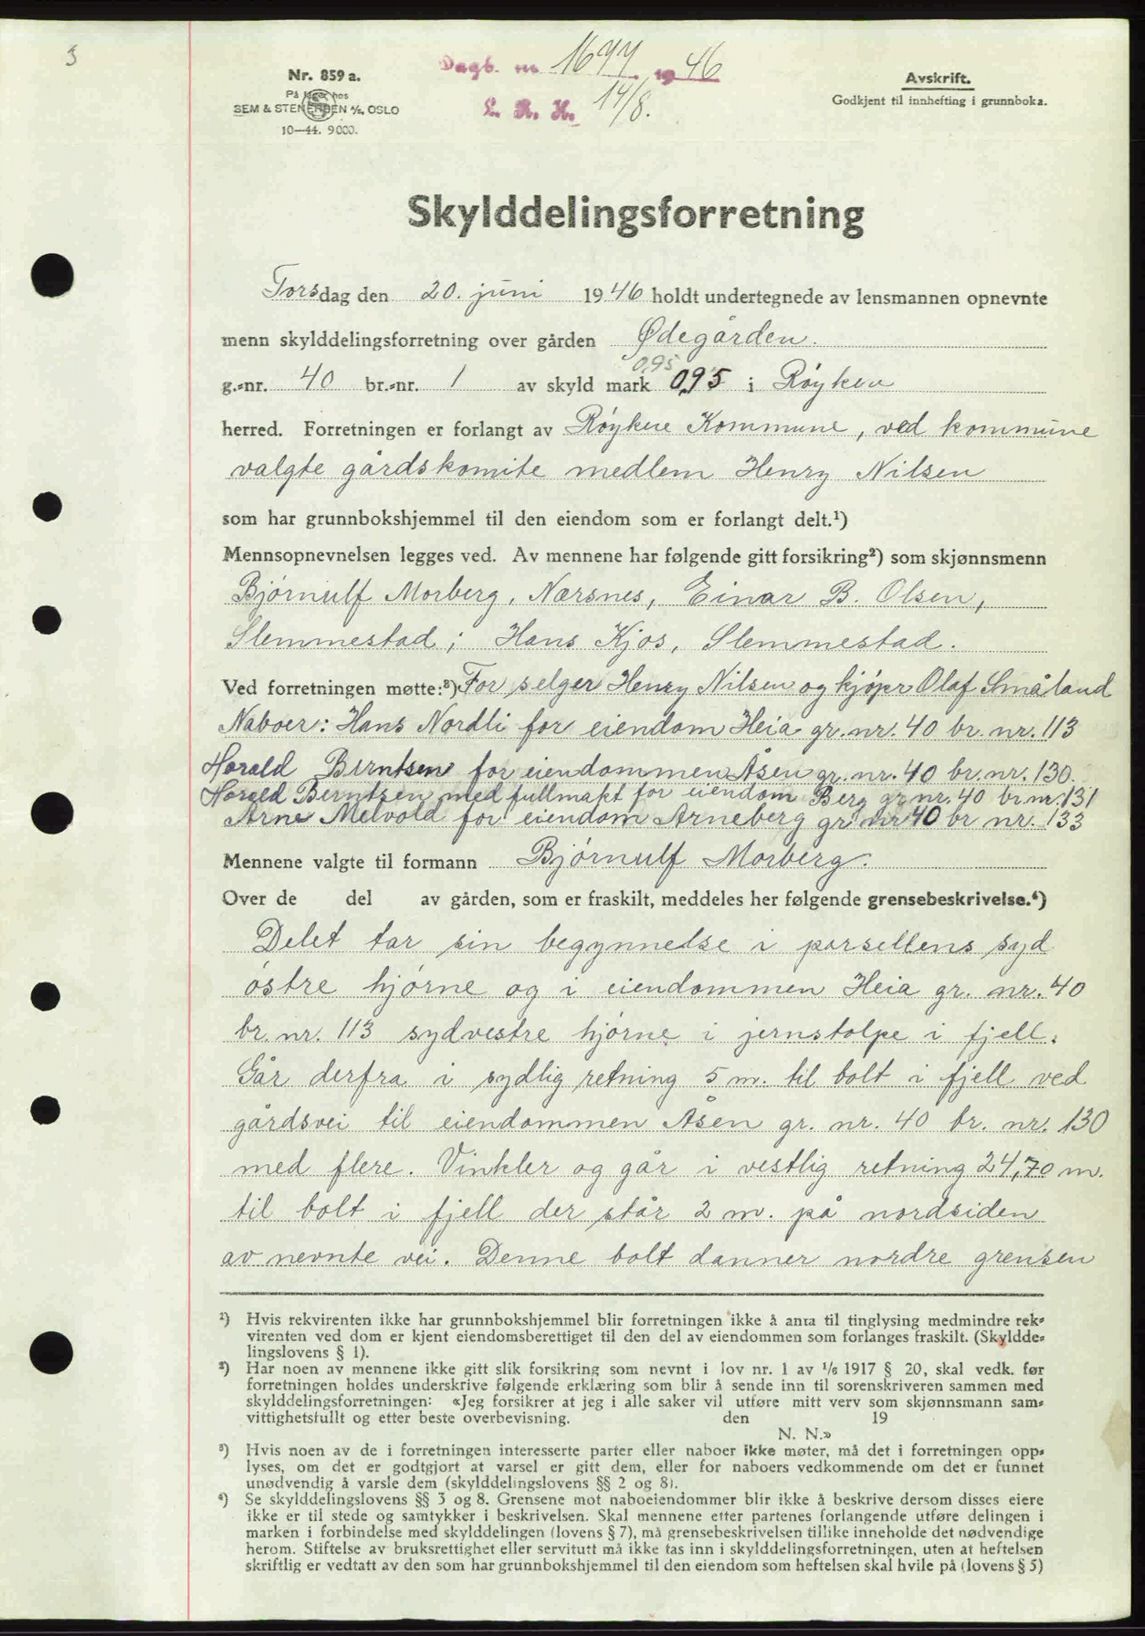 3
Dagb. nr. 1677 1946
L. R. K. 14/8.
Nr. 859 a.
På lager hos
SEM & STENERSEN A/S, OSLO
10—44. 9000.
Avskrift.
Godkjent til innhefting i grunnboka.
Skylddelingsforretning
Torsdag den 20. juni 1946 holdt undertegnede av lensmannen opnevnte
menn skylddelingsforretning over gården Ødegården.
0,95
g.-nr. 40 br.-nr. 1 av skyld mark 0,95 i Røyken
herred. Forretningen er forlangt av Røyken Kommune, ved kommune
valgte gårdskomite medlem Henry Nilsen
som har grunnbokshjemmel til den eiendom som er forlangt delt.¹)
Mennsopnevnelsen legges ved. Av mennene har følgende gitt forsikring²) som skjønnsmenn
Bjørnulf Morberg, Nærsnes, Einar B. Olsen,
Slemmestad; Hans Kjos, Slemmestad.
Ved forretningen møtte:³) For selger Henry Nilsen og kjøper Olaf Småland
Naboer: Hans Nordli for eiendom Heia gr. nr. 40 br. nr. 113
Harald Berntsen for eiendommen Åsen gr. nr. 40 br. nr. 130.
Harald Berntzen med fullmakt for eiendom Berg gr nr. 40 br. nr. 131
Arne Melvold for eiendom Arneberg gr nr 40 br nr. 133
Mennene valgte til formann Bjørnulf Morberg.
Over de del av gården, som er fraskilt, meddeles her følgende grensebeskrivelse.⁴)
Delet tar sin begynnelse i parsellens syd
østre hjørne og i eiendommen Heia gr. nr. 40
br. nr. 113 sydvestre hjørne i jernstolpe i fjell.
Går derfra i sydlig retning 5 m. til bolt i fjell ved
gårdsvei til eiendommen Åsen gr. nr. 40 br. nr. 130
med flere. Vinkler og går i vestlig retning 24,70 m.
til bolt i fjell der står 2 m. på nordsiden
av nevnte vei. Denne bolt danner nordre grensen
¹) Hvis rekvirenten ikke har grunnbokshjemmel blir forretningen ikke å anta til tinglysing medmindre rek-
virenten ved dom er kjent eiendomsberettiget til den del av eiendommen som forlanges fraskilt. (Skyldde-
lingslovens § 1).
²) Har noen av mennene ikke gitt slik forsikring som nevnt i lov nr. 1 av ¹/₆ 1917 § 20, skal vedk. før
forretningen holdes underskrive følgende erklæring som blir å sende inn til sorenskriveren sammen med
skylddelingsforretningen: «Jeg forsikrer at jeg i alle saker vil utføre mitt verv som skjønnsmann sam-
vittighetsfullt og etter beste overbevisning. den 19
N. N.»
³) Hvis noen av de i forretningen interesserte parter eller naboer ikke møter, må det i forretningen opp-
lyses, om det er godtgjort at varsel er gitt dem, eller for naboers vedkommende om det er funnet
unødvendig å varsle dem (skylddelingslovens §§ 2 og 8).
⁴) Se skylddelingslovens §§ 3 og 8. Grensene mot naboeiendommer blir ikke å beskrive dersom disses eiere
ikke er til stede og samtykker i beskrivelsen. Skal mennene etter partenes forlangende utføre delingen i
marken i forbindelse med skylddelingen (lovens § 7), må grensebeskrivelsen tillike inneholde det nødvendige
herom. Stiftelse av bruksrettighet eller servitutt må ikke tas inn i skylddelingsforretningen, uten at heftelsen
skriftlig er vedtatt av den som har grunnbokshjemmel til den eiendom som heftelsen skal hvile på (lovens § 5)